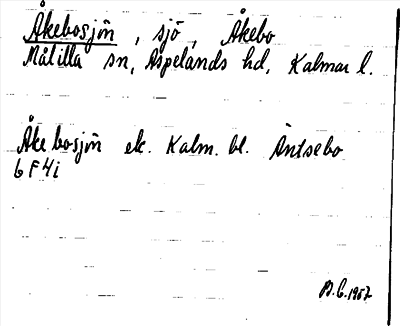 Åkebosjön, sjö, Åkebo
Målilla sn, Aspelands hd, Kalmar l.
Åkebosjön ek. Kalm. bl. Äntsebo
6F4i
B.C. 1957